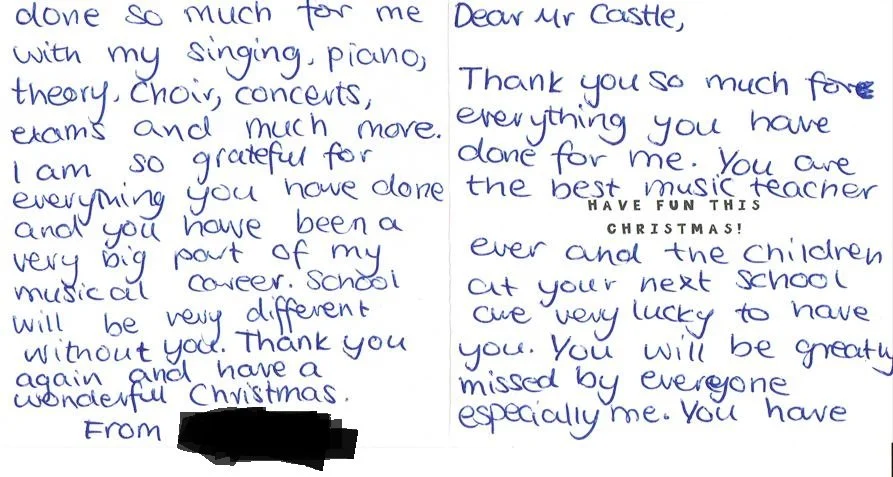 Dear Mr Castle,
Thank you so much for
everything you have
done for me. You are
the best music teacher
HAVE FUN THIS
CHRISTMAS!
ever and the children
at your next school
are very lucky to have
you. You will be greatly
missed by everyone
especially me. You have
done so much for me
with my singing, piano,
theory, Choir, concerts,
exams and much more.
I am so grateful for
everything you have done
and you have been a
very big part of my
musical career. School
will be very different
without you. Thank you
again and have a
wonderful Christmas.
From